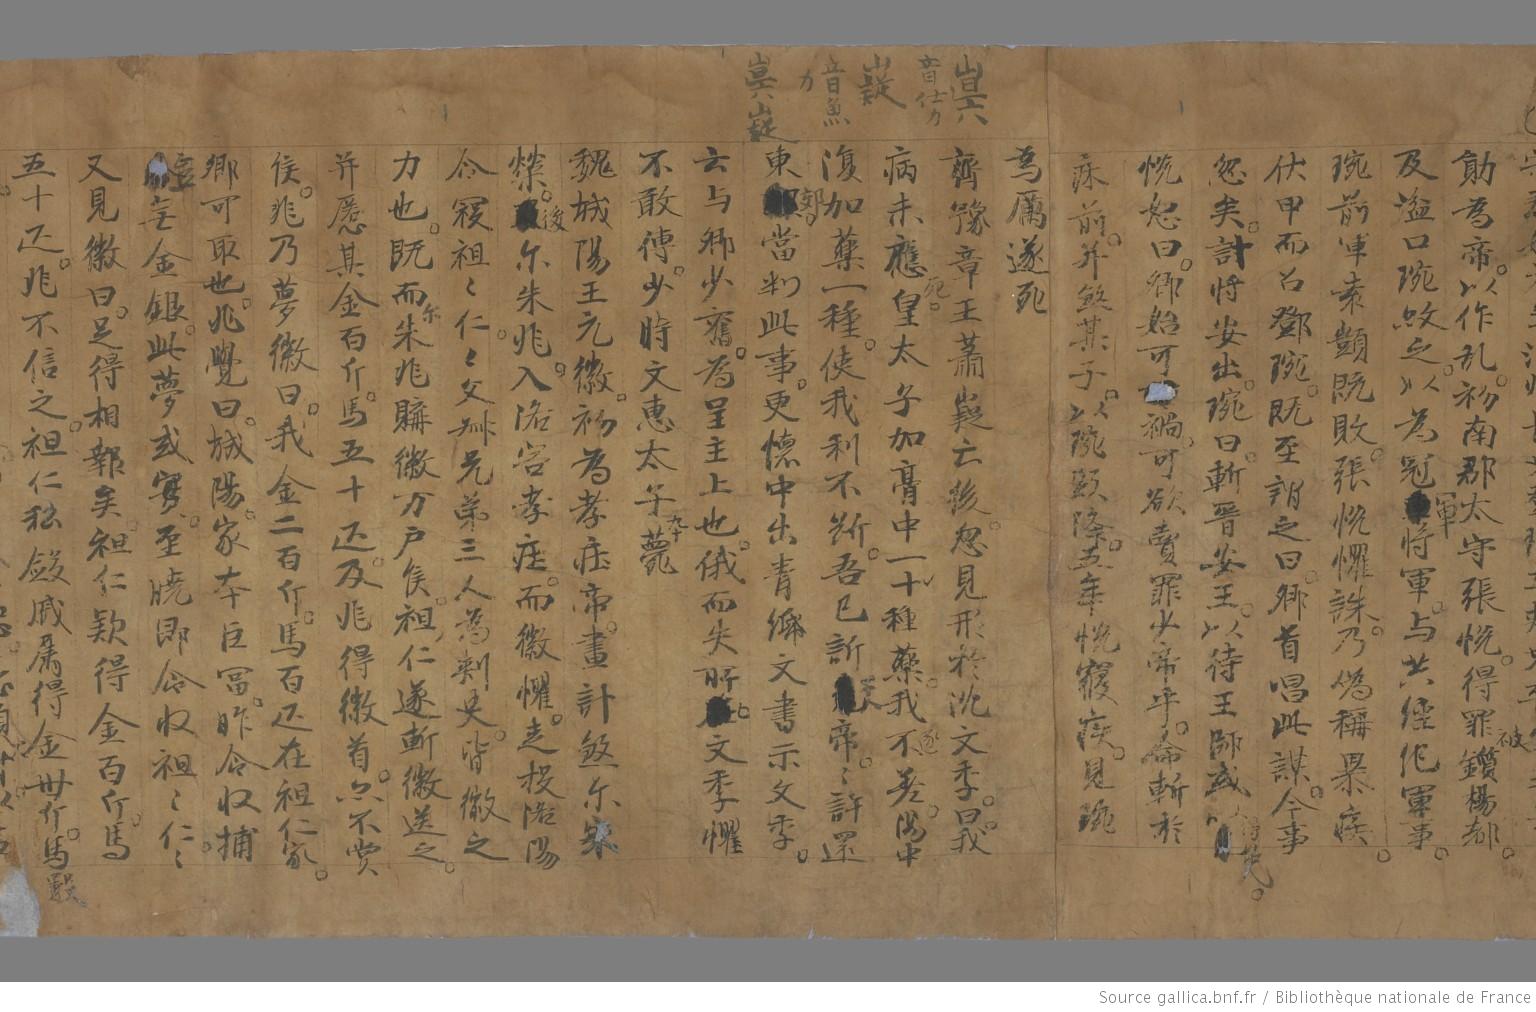 勛為帝以作乱初南郡太守張悅得罪鏁楊都
及湓口琬赦之以為冠軍将軍与共經化軍事
琬前軍袁顗既敗張悅懼誅乃偽稱暴疾
伏甲而召鄧琬既至謂之曰卿首唱此謀今事
忽矣計将安出琬曰斬晋安王以待王師或
悅怒曰卿始可禍可欲賣罪少帝乎命斬於
床前并煞其子以琬頭降五年悅寢疾見琬
為厲遂死
齊豫章王蕭嶷亡後忽見形於沈文季曰我
病未應死皇太子加膏中一十種藥我不差湯中
復加藥一種使我利不断吾已訴天帝〻許還
東邸當判此事更懷中出青紙文書示文季
云与卿少舊為呈主上也俄而失所在文季懼
不敢傳少時文惠太子薨
魏城陽王元徽初為孝庄帝畫計煞尒朱
榮後尒朱兆入洛害孝庄而徽懼走投洛陽
令寇祖〻仁〻父叔兄弟三人為刺史皆徽之
力也既而尒朱兆購徽万戶侯祖仁遂斬徽送之
并匿其金百斤馬五十疋及兆得徽首亦不賞
侯兆乃夢徽曰我金二百斤馬百疋在祖仁家
卿可取也兆覺曰城陽家本巨冨昨令收捕
無金銀此夢或實至曉即令收祖〻仁〻
又見徽曰足得相報矣祖仁款得金百斤馬
五十疋兆不信之祖仁私斂戚属得金卅斤馬